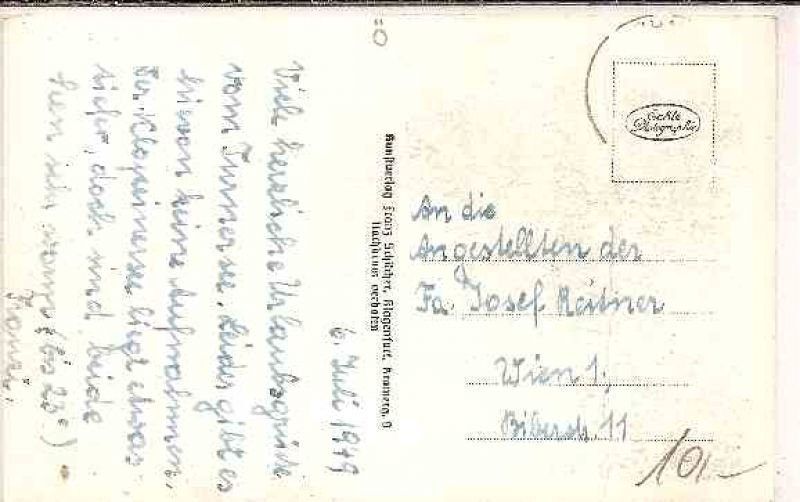 6 Juli 1949
Viele herzliche Urlaubsgrüße
vom Turnersee. Leider gibt es
hievon keine Aufnahmen,
Der Klopeinersee liegt etwas
tiefer, doch sind beide
Seen sehr warm (bis 23°)
Kunstverlag Franz Schilcher, Klagenfurt, Kramerg. 9
Nachdruck verboten
Echte
Photographie
An die
Angestellten der
Fa. Josef Reitner
Wien 1,
Biberstr. 11
10.-